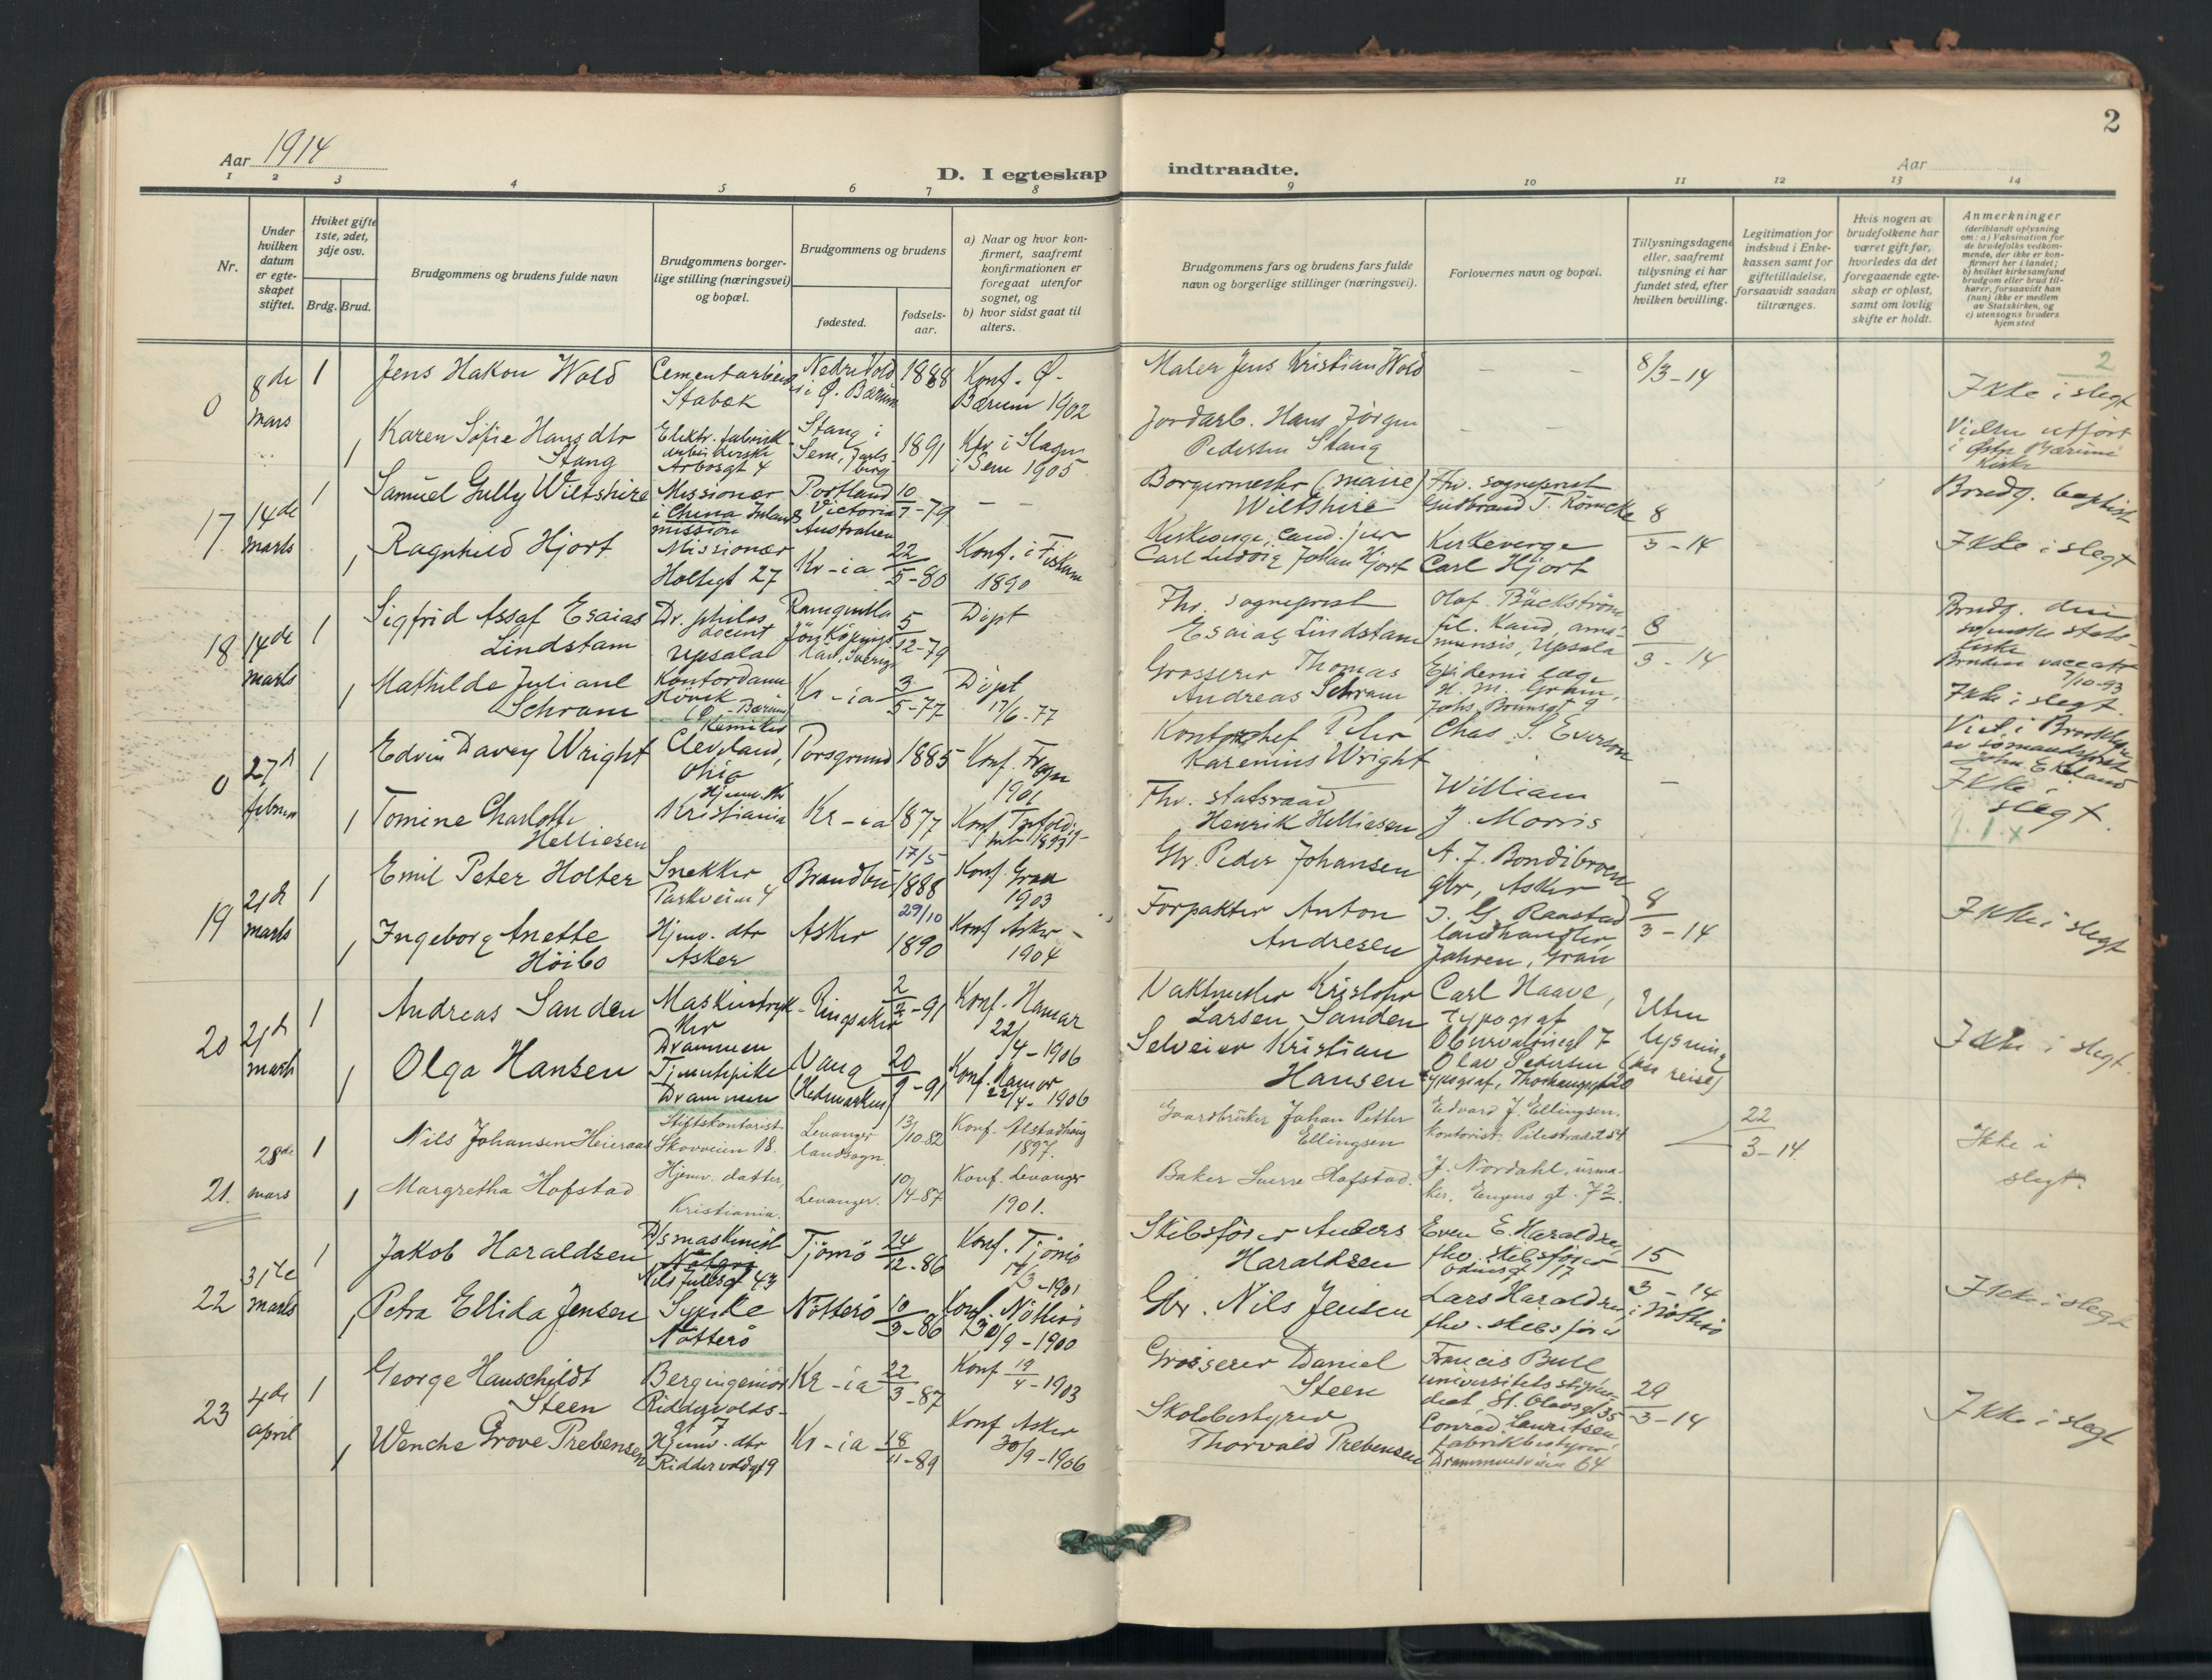 2
Aar 1914
D. I egteskap
indtraadte.
Aar
1 2 3 4 5 6 7 8 9 10 11 12 13 14
Nr.
Under
hvilken
datum
er egte-
skapet
stiftet.
Hviket gifte
1ste, 2det,
3dje osv.
Brdg. Brud.
Brudgommens og brudens fulde navn
Brudgommens borger-
lige stilling (næringsvei)
og bopæl.
Brudgommens og brudens
fødested.
fødsels-
aar.
a) Naar og hvor kon-
firmert, saafremt
konfirmationen er
foregaat utenfor
sognet, og
b) hvor sidst gaat til
alters.
Brudgommens fars og brudens fars fulde
navn og borgerlige stillinger (næringsvei).
Forlovernes navn og bopæl.
Tillysningsdagene
eller, saafremt
tillysning ei har
fundet sted, efter
hvilken bevilling.
Legitimation for
indskud i Enke-
kassen samt for
giftetilladelse,
forsaavidt saadan
tiltrænges.
Hvis nogen av
brudefolkene har
været gift før,
hvorledes da det
foregaaende egte-
skap er opløst,
samt om lovlig
skifte er holdt.
Anmerkninger
(deriblandt oplysning
om: a) Vaksination for
de brudefolks vedkom-
mende, der ikke er kon-
firmert her i landet;
b) hvilket kirkesamfund
brudgom eller brud til-
hører, forsaavidt han
(hun) ikke er medlem
av Statskirken, og
c) utensogns bruders
hjemsted
0
8de
mars
1
Jens Hakon Wold
Cementarbeid
Stabæk
Nedre Vold
i Ø. Bærum
1888
Konf. Ø.
Bærum 1902
Maler Jens Kristian Wold
– –
8/3-14
2
Ikke i slegt
1
Karen Sofie Hansdtr
Stang
Elektr. fabrik
arbeiderske
Arbosgt 4
Stang i
Sem, Jarls-
berg
1891
Kfr. i Slagn
i Sem 1905
Jordarb. Hans Jørgen
Pedersen Stang
– –
Vielsen utført
i Østre Bærums
Kirke
17
14de
marts
1
Samuel Gully Wiltshire
Missionær
i China Inland
mission
Portland
Victoria
Australien
10/7-79
– –
Borgermester (maire)
Wiltshire
Fhv. sogneprest
Gudbrand T. Römcke
8/3-14
Brudg. baptist
1
Ragnhild Hjort
Missionær
Holtegt 27
Kr-ia
22/5-80
Konf. i Fiskum
1890
Kirkeverge, Cand. jur
Carl Ludvig Johan Hjort
Kirkeverge
Carl Hjort
Ikke i slegt
18
14de
marts
1
Sigfrid Assaf Esaias
Lindstam
Dr. philos
docent
Upsala
Jönköpings
Län, Sverig
5/12-79
Döpt
Fhv. sogneprest
Esaias Lindstam
Olof Bäckström
fil. Kand, ama-
nuensis, Upsala
8/3-14
Brudg. den
svenske stats-
kirke
1
Mathilde Juliane
Schram
Kontordame
Hövik
(Ø. Bærum)
Kr-ia
3/5-77
Döpt
17/6-77
Grosserer Thomas
Andreas Schram
Epidemi læge
H. M. Gram,
Johs Brunsgt 9
Bruden vaccat
7/10-93
Ikke i slegt.
0
27de
februar
1
Edvin Davey Wright
Kemiker
Cleveland,
Ohio
Porsgrund
1885
Konf. Frogn
1901
Kontorchef Peter
Karenius Wright
Chas S. Everson
–
Viet i Brooklyn
av sømandsprest
John Ekeland
Ikke i
slegt.
1
Tomine Charlotte
Helliesen
Hjemv. dtr
Kristiania
Kr-ia
1877
Konf Trefoldig-
1893
Fhv. statsraad
Henrik Helliesen
William
J. Morris
19
21de
marts
1
Emil Peter Holter
Snekker
Parkveien 4
Brandbu
17/5
1888
Konf. Gran
1903
Gbr. Peder Johansen
A. J. Bondibroen
gbr, Asker
8/3-14
Ikke i slegt
1
Ingeborg Anette
Höibo
Hjemv. dtr
Asker
Asker
29/10
1890
Konf Asker
1904
Forpakter Anton
Andresen
J. G. Raastad
landhandler
Jahren, Gran
20
21de
marts
1
Andreas Sanden
Maskintryk-
ker
Drammen
Ringsaker
2/2-91
Konf. Hamar
22/4-1906
Vaktmester Kristofer
Larsen Sanden
Carl Haave,
typograf
Observatoriegt 7
Uten
lysning
(paa reise)
Ikke i slegt.
1
Olga Hansen
Tjenestepike
Drammen
Vang
(Hedmarken)
20/9-91
Konf. Hamar
22/4-1906
Selveier Kristian
Hansen
Olav Pedersen
typograf,
21.
28de
mars
1
Nils Johansen Heieraas
Stiftskontorist
Skovveien 18.
Levanger
landsogn.
13/10-82
Konf. Alstadhaug
1897.
Gaardbruker Johan Petter
Ellingsen
Edvard J. Ellingsen.
kontorist. Pilestrædet 54
22/3-14.
Ikke i
slegt.
1
Margretha Hofstad
Hjemv. datter,
Kristiania.
Levanger.
10/4-87
Konf. Levanger
1901.
Baker Sverre Hofstad.
J. Nordahl, urma-
ker, Eugens gt. 72.
22
31te
marts
1
Jakob Haraldsen
D/s maskinist
Nils Juelsgt 43
Tjömö
24/12-86
Konf. Tjömö
17/3-1901
Skibsfører Anders
Haraldsen
Even E. Haraldsen,
fhv. skibsfører
Odinsgt 17
15/3-14
i Nötterö
Ikke i slegt
1
Petra Ellida Jensen
Sypike
Nötterö
Nötterö
10/9-86
Konf. Nötterö
30/9-1900
Gbr. Nils Jensen
Lars Haraldsen,
fhv. skibsfører
23
4de
april
1
George Hauschildt
Steen
Bergingeniør
Riddervolds-
gt 7
Kr-ia
22/3-87
Konf 19/4-1903
Grosserer Daniel
Steen
Francis Bull
universitetsstipen-
diat, St. Olavsgt 35
29/3-14
Ikke i slegt
1
Wenche Grove Prebensen
Hjemv. dtr
Riddervoldsgt 9
Kr-ia
18/11-89
Konf Asker
30/9-1906
Skolebestyrer
Thorvald Prebensen
Conrad Lauritsen
fabrikbestyrer
Drammensveien 64